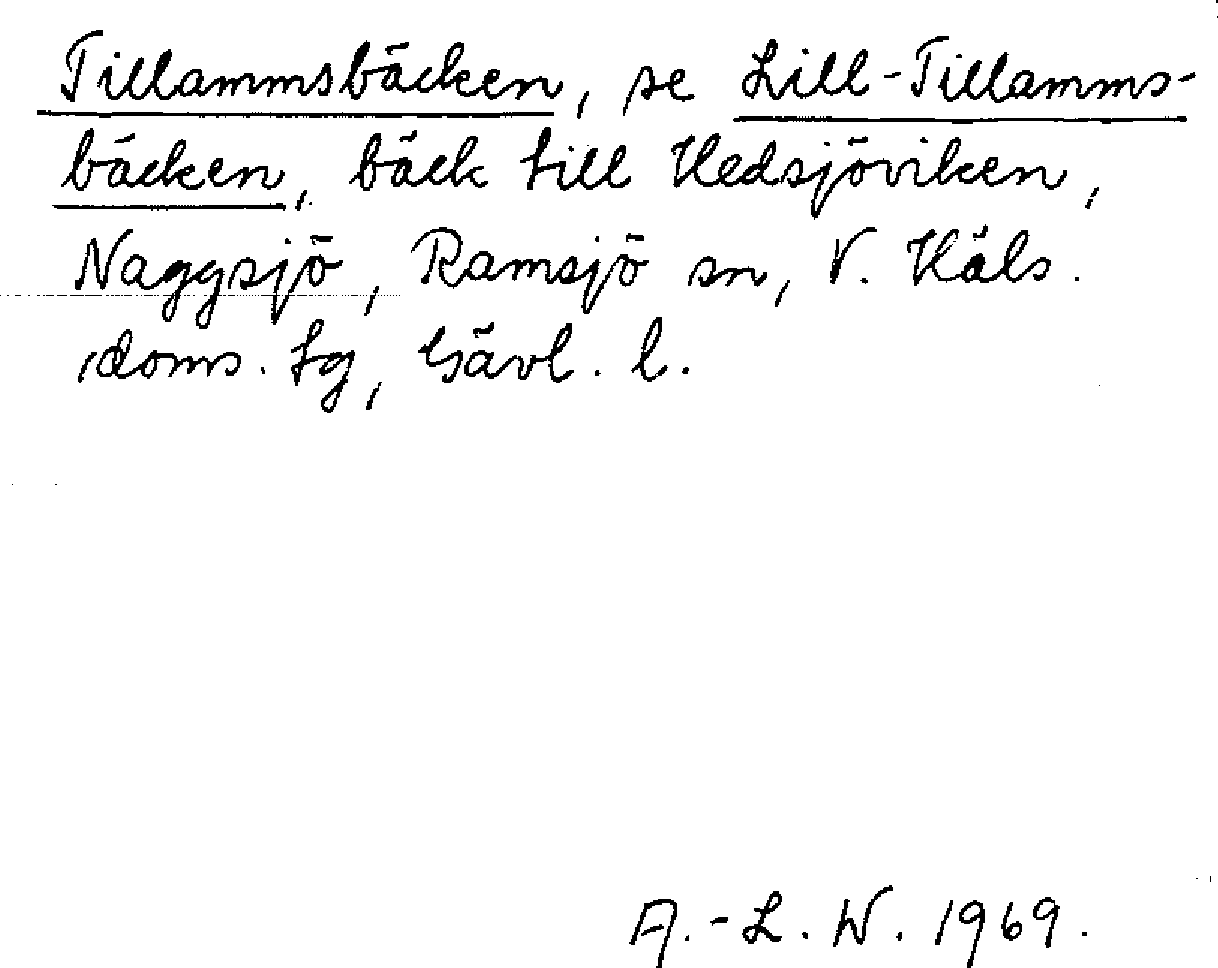 Tillammsbäcken, se Lill-Tillamms-
bäcken, bäck till Hedsjöviken,
Naggsjö, Ramsjö sn, V. Häls.
doms. tg, Gävl. l.
A.-L. W. 1969.